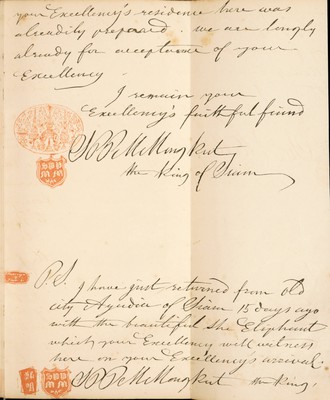 your Excellency's residence here was
alreadily prepared. we are longly
already for acceptance of your
Excellency
I remain your
Excellency's faithful friend
SPPM Mongkut
the King of Siam
P.S. I have just returned from Old
city Ayudia of Siam 15 days ago
with the beautiful She Elephant
which your Excellency will witness
here on your Excellency's arrival.
SPPM Mongkut the King,